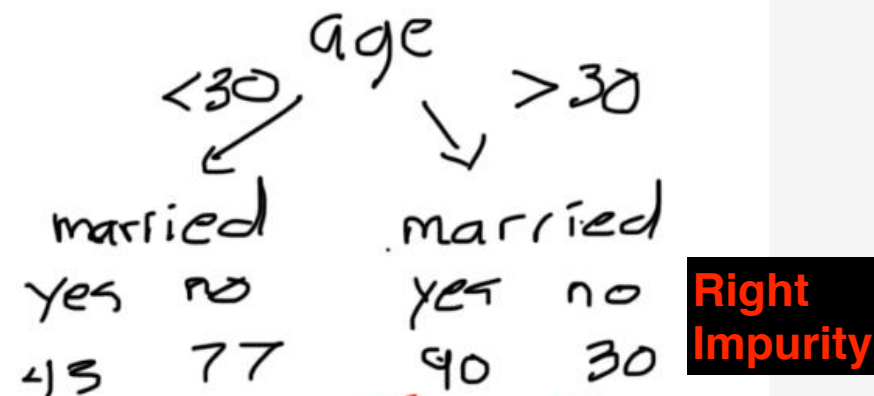 age
<30 >30
married married
yes no yes no Right
43 77 90 30 Impurity